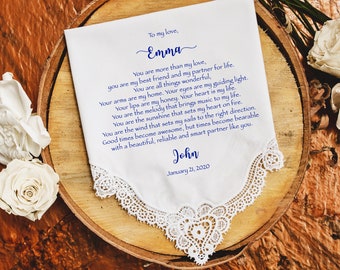 To my love,
Emma
You are more than my love,
you are my best friend and my partner for life.
You are all things wonderful,
Your arms are my home. Your eyes are my guiding light.
Your lips are my honey. Your heart is my life.
You are the melody that brings music to my life.
You are the sunshine that sets my heart on fire.
You are the wind that sets my sails to the right direction.
Good times become awesome, but times become bearable
with a beautiful, reliable and smart partner like you.
John
January 21, 2020